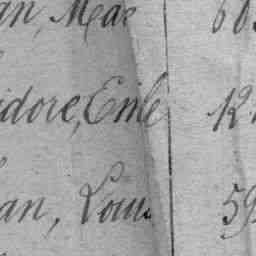 an, Mar 60
idore, Emile 12
an, Louis 59